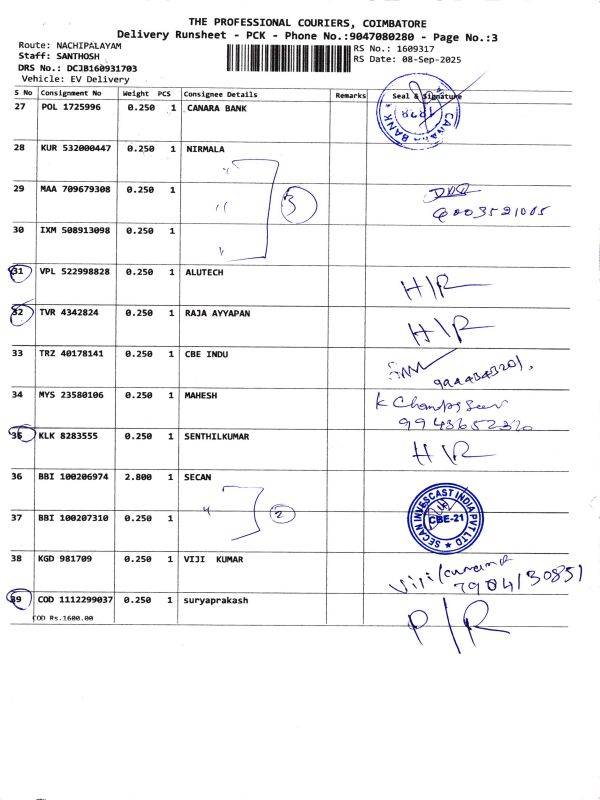 THE PROFESSIONAL COURIERS, COIMBATORE
Delivery Runsheet - PCK - Phone No.:9047080280 - Page No.:3
Route: NACHIPALAYAM RS No.: 1609317
Staff: SANTHOSH RS Date: 08-Sep-2025
DRS No.: DCJB160931703
Vehicle: EV Delivery
S No Consignment No Weight PCS Consignee Details Remarks Seal & Signature
27 POL 1725996 0.250 1 CANARA BANK CANARA BANK
28 KUR 532000447 0.250 1 NIRMALA
29 MAA 709679308 0.250 1 3
30 IXM 508913098 0.250 1
31 VPL 522998828 0.250 1 ALUTECH H/R
32 TVR 4342824 0.250 1 RAJA AYYAPAN H/R
33 TRZ 40178141 0.250 1 CBE INDU
34 MYS 23580106 0.250 1 MAHESH K
9943652320
35 KLK 8283555 0.250 1 SENTHILKUMAR H/R
36 BBI 100206974 2.800 1 SECAN SECAN INVESCAST INDIA PVT LTD
CBE-21
37 BBI 100207310 0.250 1 2
38 KGD 981709 0.250 1 VIJI KUMAR Viji
7904130851
39 COD 1112299037 0.250 1 suryaprakash P/R
COD Rs.1600.00